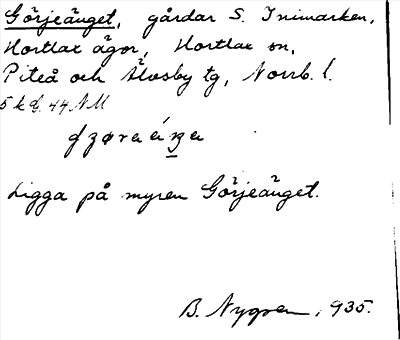 Görjeänget, gårdar S. Inimarken,
Hortlax ägor, Hortlax sn,
Piteå och Älvsby tg, Norrb. l.
5 k d. 44 NM
Ligga på myren Görjeänget.
B. Nygren, 1935.